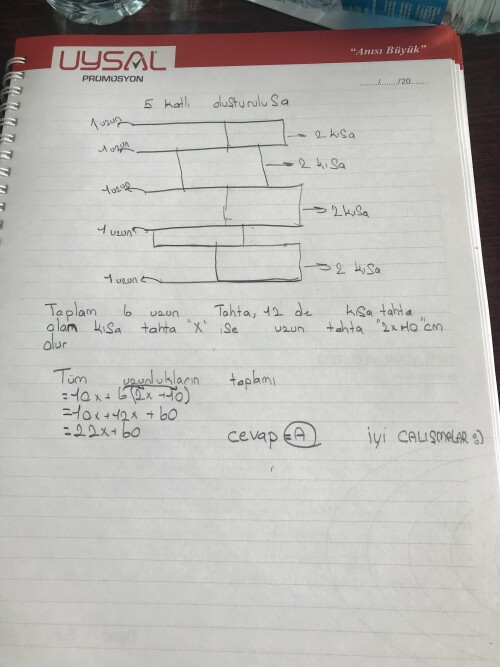 UYSAL
PROMOSYON
"Anısı Büyük"
....../....../20........
5 katlı oluşturulusa
1 uzun
2 kısa
1 uzun
2 kısa
1 uzun
2 kısa
1 uzun
1 uzun
2 kısa
Toplam 6 uzun Tahta, 12 de kısa tahta
olan kısa tahta "X" ise uzun tahta "2x+10" cm
olur
Tüm uzunlukların toplamı
=10x+6(2x+10)
=10x+12x+60
=22x+60
cevap=A iyi ÇALIŞMALAR :)